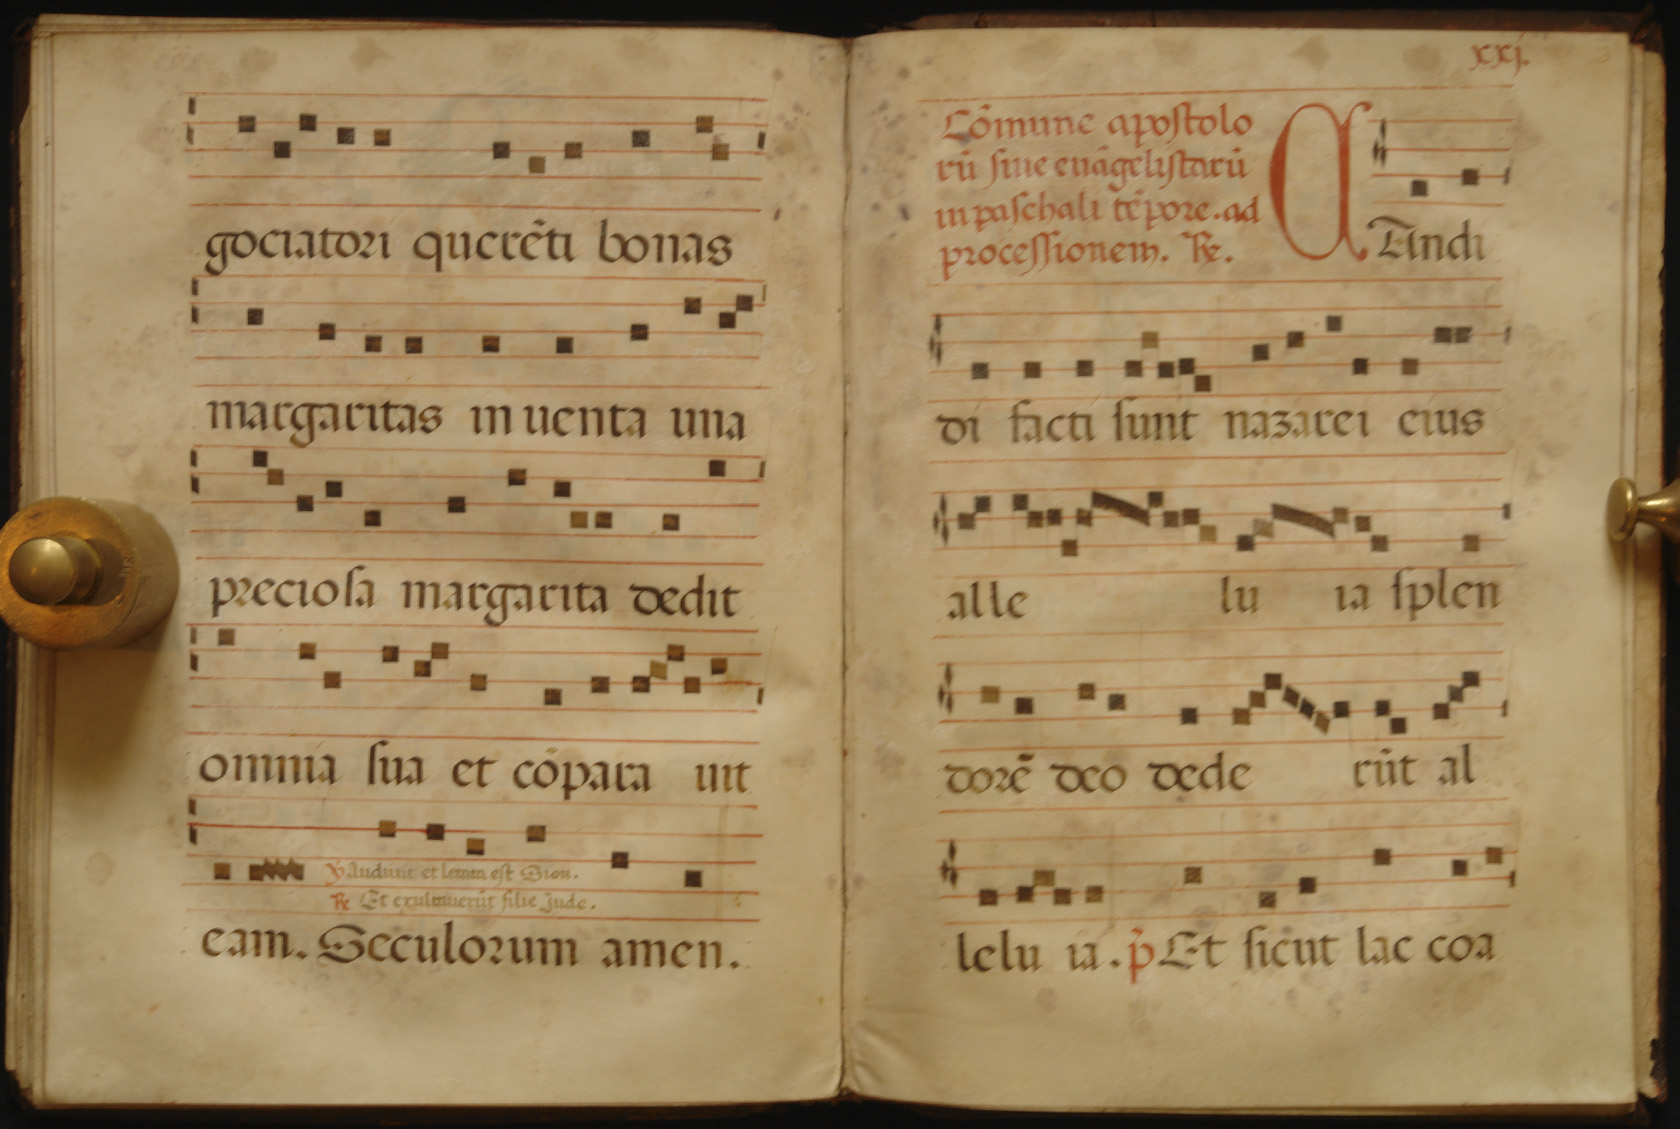 gociatori querẽti bonas
margaritas inuenta una
preciosa margarita dedit
omnia sua et cõpara uit
℣ Audiuit et letata est Sion.
℟ Et exultauerũt filie Jude.
eam. Seculorum amen.
xxj.
Cõmune apostolo
rũ siue euãgelistarũ
in paschali tẽpore. ad
processionem. ℟.
CAndi
di facti sunt nazarei eius
alle lu ia splen
dorẽ deo dede rũt al
lelu ia. p̃ Et sicut lac coa